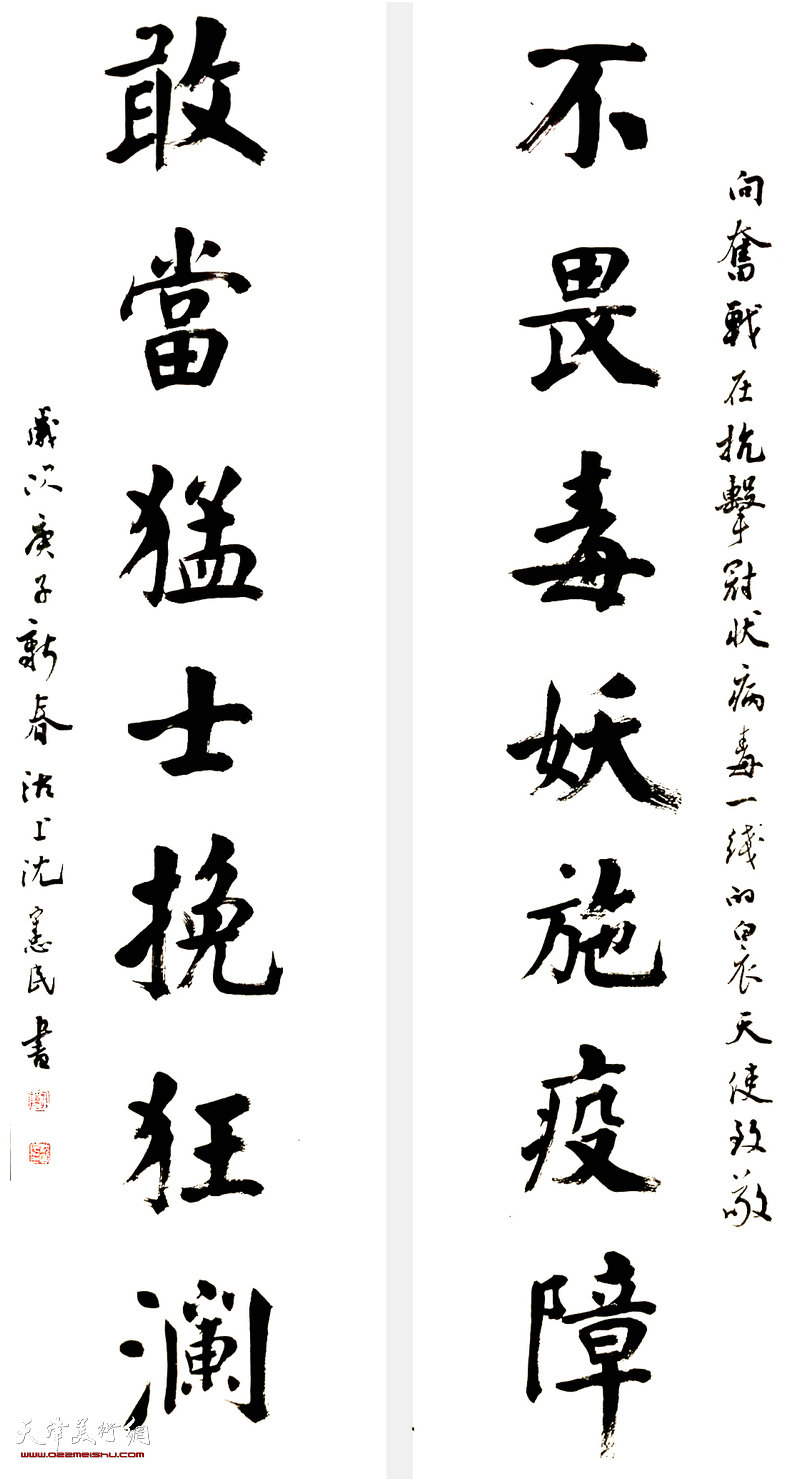 向奮戰在抗擊冠状病毒一线的白衣天使致敬
不畏毒妖施疫障
敢當猛士挽狂澜
歲次庚子新春沽上沈憲民書
天津美術網
www.022meishu.com